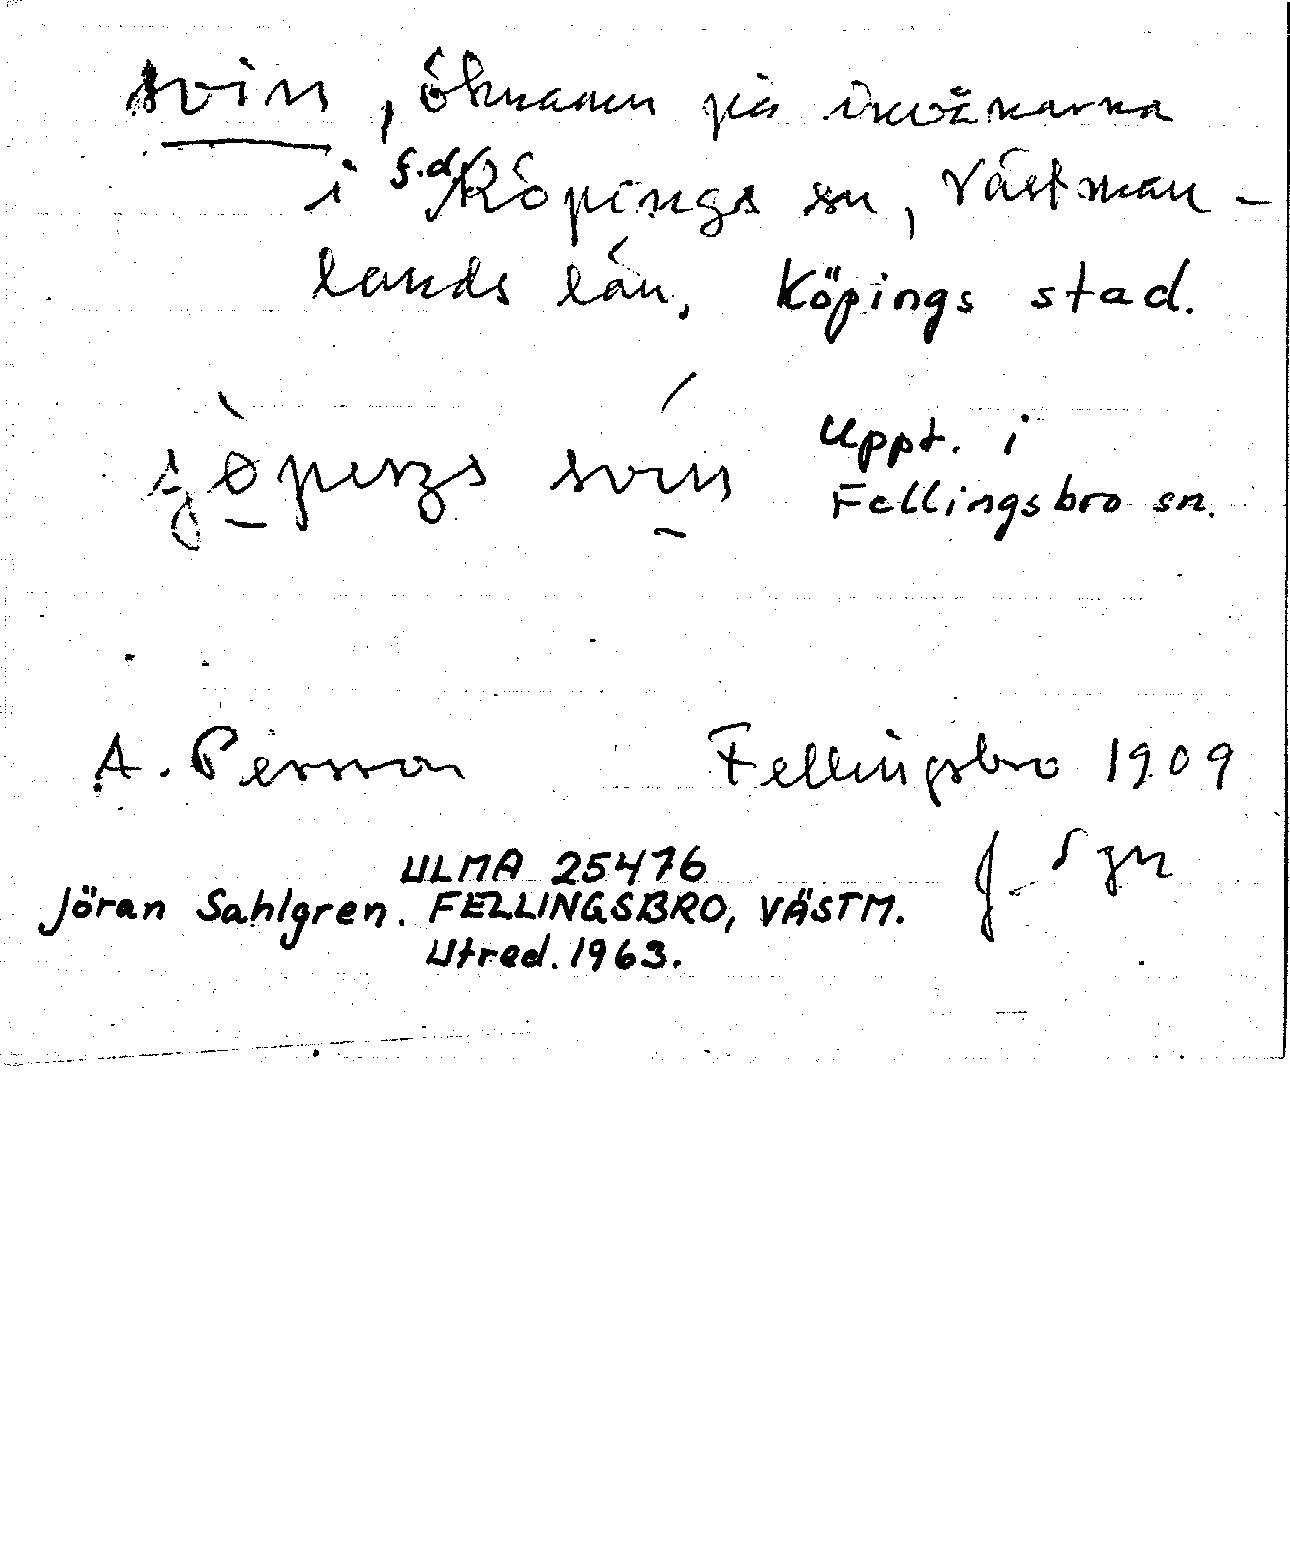 svin, öknamn på invånarna
i f.d. Köpings sn, Västman-
lands län, Köpings stad.
Uppt. i
Fellingsbro sn.
svin
A. Persson Fellingsbro 1909
J. Sgn
ULMA 25476
Jöran Sahlgren. FELLINGSBRO, VÄSTM.
Utred. 1963.